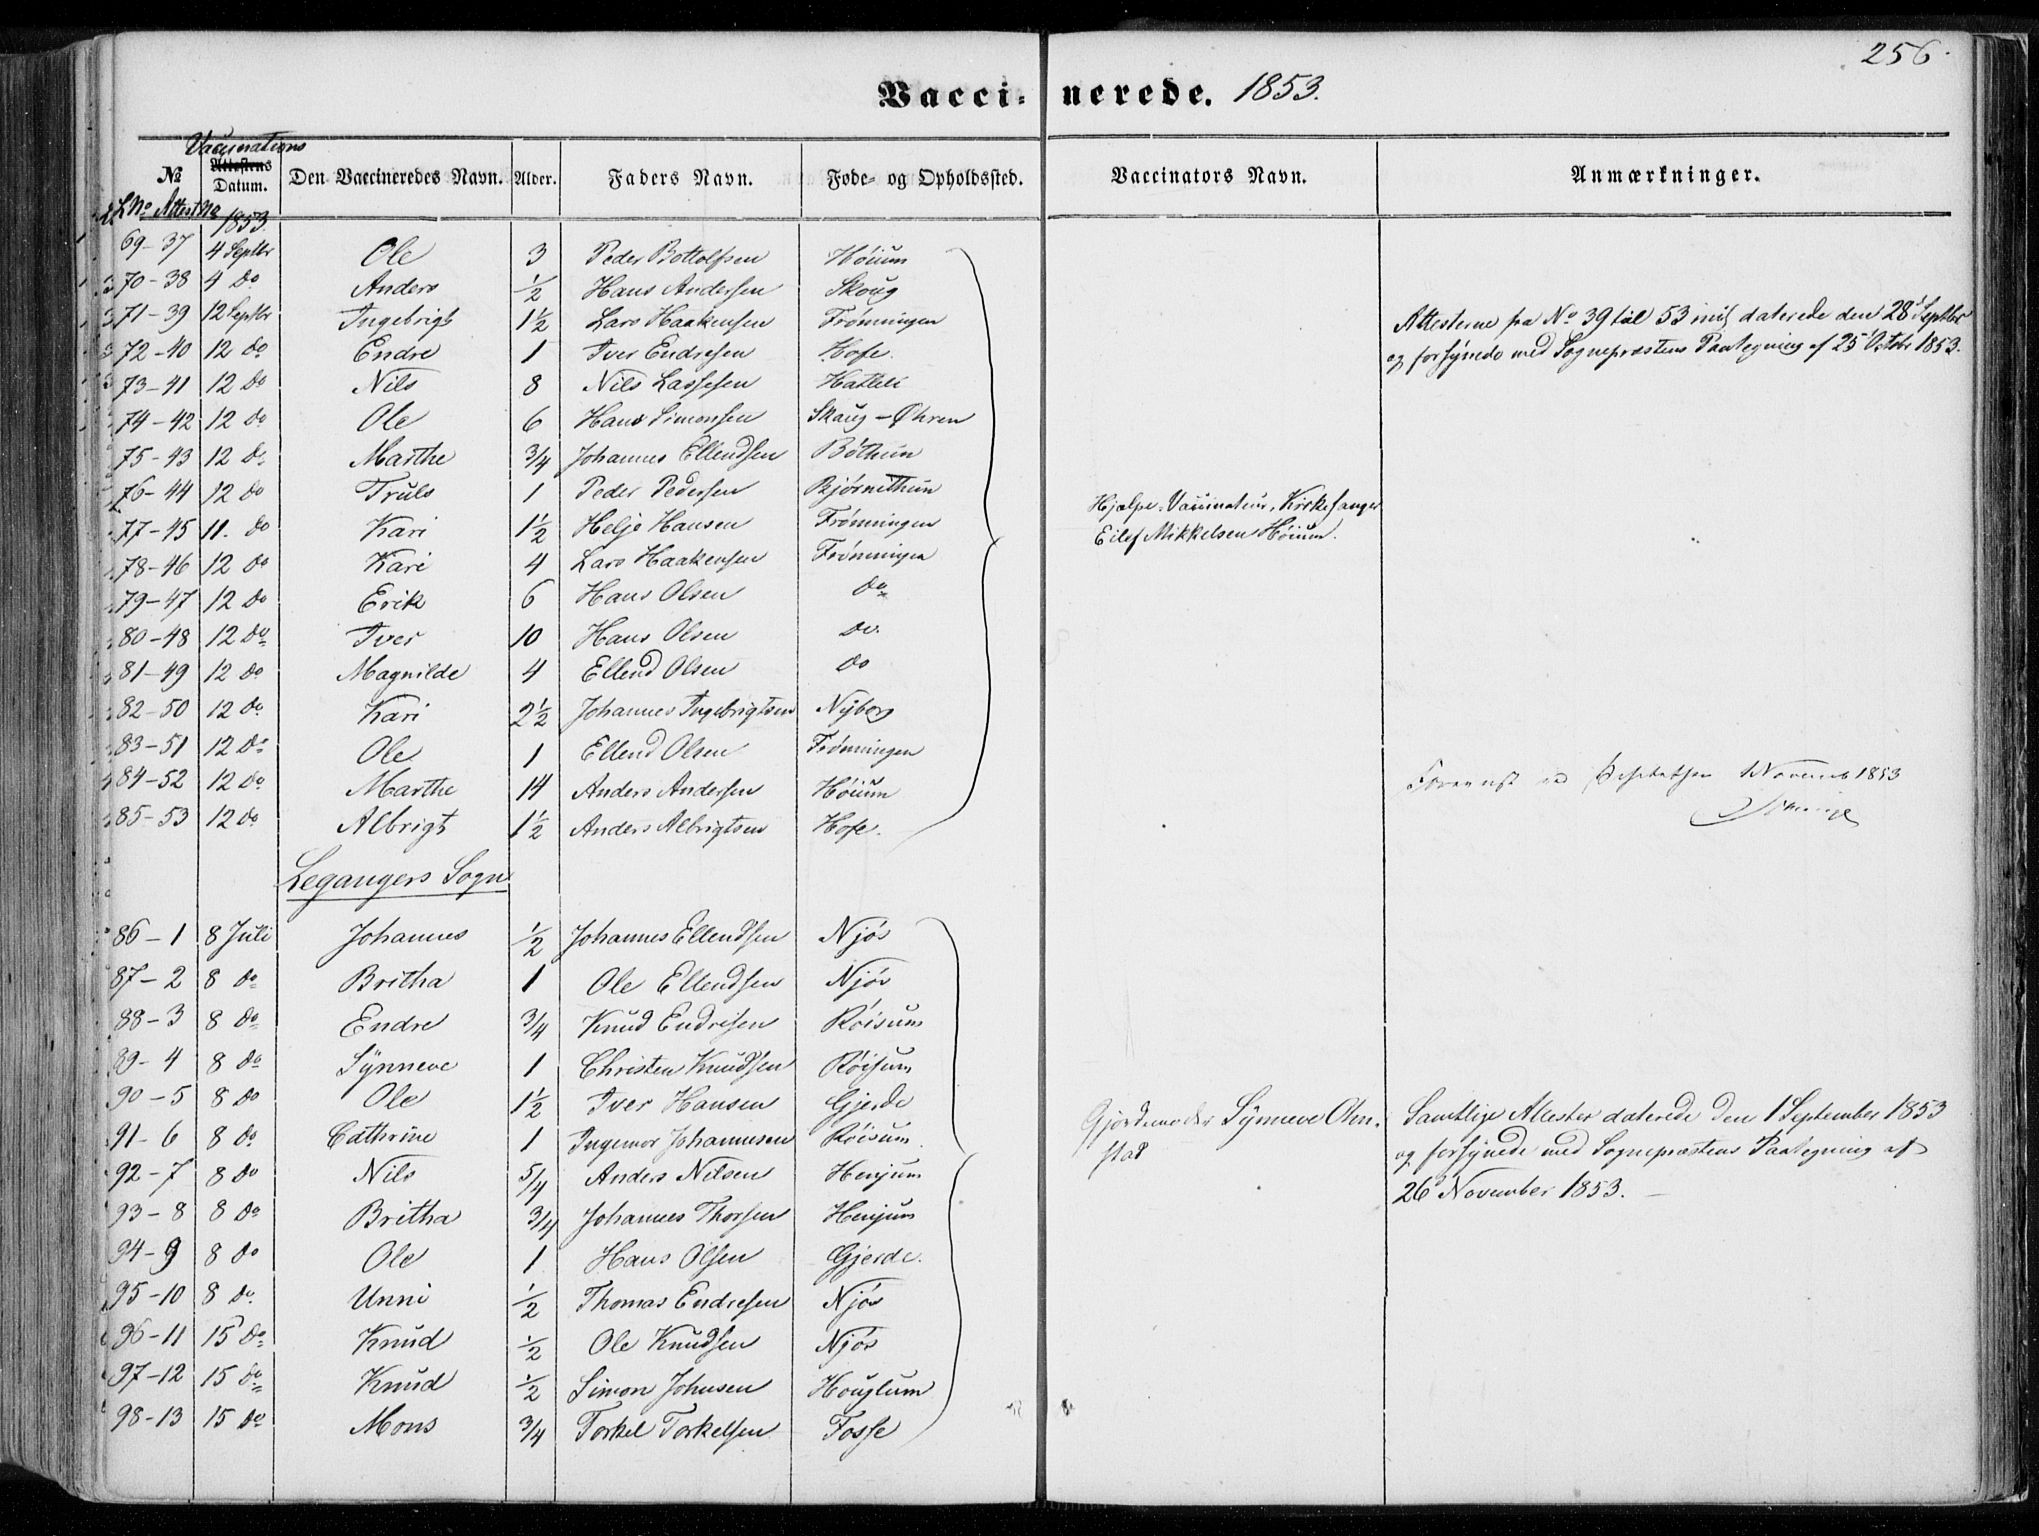 256
Vaccinerede. 1853.
Vaccinations
№ Attestens Datum. Den Vaccineredes Navn. Alder. Faders Navn. Føde- og Opholdssted. Vaccinators Navn. Anmærkninger.
L No Attest No 1853.
69-37 4 Septbr Ole 3 Peder Bottolfsen Höium
70-38 4 do Anders 1/2 Hans Andersen Skoug
71-39 12 Septbr Ingebrigt 1 1/2 Lars Haakensen Frønningen
72-40 12 do Endre 1 Iver Endresen Hofe.
73-41 12 do Nils 8 Nils Lassesen Hatleli
74-42 12 do Ole 6 Hans Simonsen Skaug - Øhren
75-43 12 do Marthe 3/4 Johannes Ellendsen Böthun
76-44 12 do Truls 1 Peder Pedersen Bjørnethun
77-45 11. do Kari 1 1/2 Helje Hansen Frønningen
78-46 12 do Kari 4 Lars Haakensen Frønningen
79-47 12 do Erik 6 Hans Olsen do
80-48 12 do Iver 10 Hans Olsen do.
81-49 12 do Magnilde 4 Ellend Olsen do
82-50 12 do Kari 2 1/2 Johannes Ingebrigtsen Nyborg
83-51 12 do Ole 1 Ellend Olsen Frønningen
84-52 12 do Marthe 14 Anders Andersen Höium
85-53 12 do Albrigt 1 1/2 Anders Albrigtsen Hofe.
Attesterne fra No 39 til 53 daterede den 28d Septbr
og forsynede med Sognepræstens Paategning af 25 Octbr 1853.
Hjælpe-Vaccinateur, Kirkesanger
Eilef Mikkelsen Höium.
1 Novemb 1853
Legangers Sogn
86-1 8 Juli Johannes 1/2 Johannes Ellendsen Njøs
87-2 8 do Britha 1 Ole Ellendsen Njøs
88-3 8 do Endre 3/4 Knud Endresen Röisum
89-4 8 do Synneve 1 Christen Knudsen Röisum
90-5 8 do Ole 1 1/2 Iver Hansen Gjerde
91-6 8 do Cathrine 1 Ingemor Johannesen Röisum.
92-7 8 do Nils 5/4 Anders Nilsen Henjum
93-8 8 do Britha 3/4 Johannes Thorsen Henjum
94-9 8 do Ole 1 Hans Olsen Gjerde.
95-10 8 do Unni 1/2 Thomas Endresen Njøs
96-11 15 do Knud 1/2 Ole Knudsen Njøs
97-12 15 do Knud 1/2 Simon Johnsen Houglum
98-13 15 do Mons 3/4 Torkel Torkelsen Fosse
Gjordemoder Synneve Olm-
stad
Samtlige Attester daterede den 1 September 1853
og forsynede med Sognepræstens Paategning af
26d November 1853.